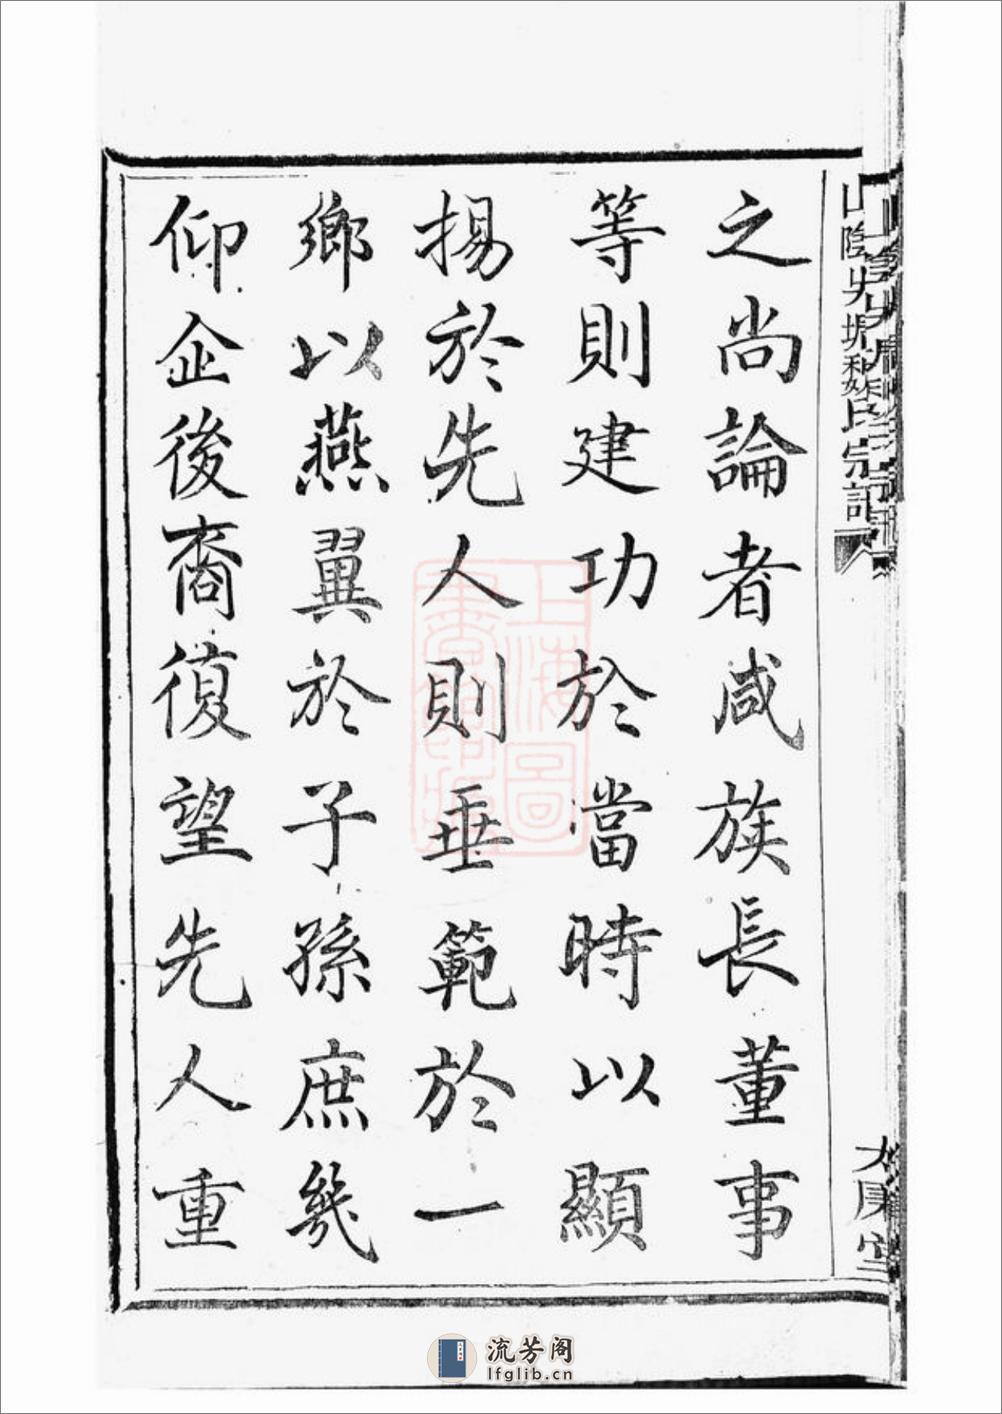 之尚論者咸族長董事
等則建功於當時以顯
揚於先人則垂範於一
鄉以燕翼於子孫庶幾
仰企後裔復望先人重
氏宗譜
上海圖書館藏
流芳阁
lfglib.cn